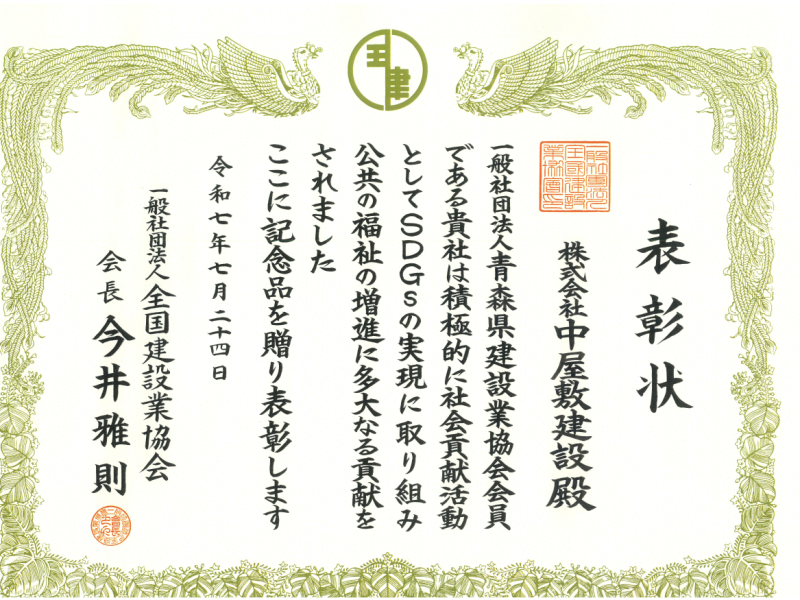 表彰状
株式会社中屋敷建設殿
一般社団法人青森県建設業協会会員
である貴社は積極的に社会貢献活動
としてSDGsの実現に取り組み
公共の福祉の増進に多大なる貢献を
されました
ここに記念品を贈り表彰します
令和七年七月二十四日
一般社団法人全国建設業協会
会長今井雅則